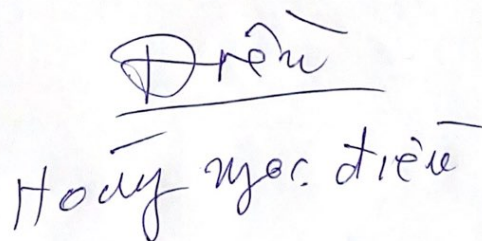 Điều
Hoàng Ngọc điều